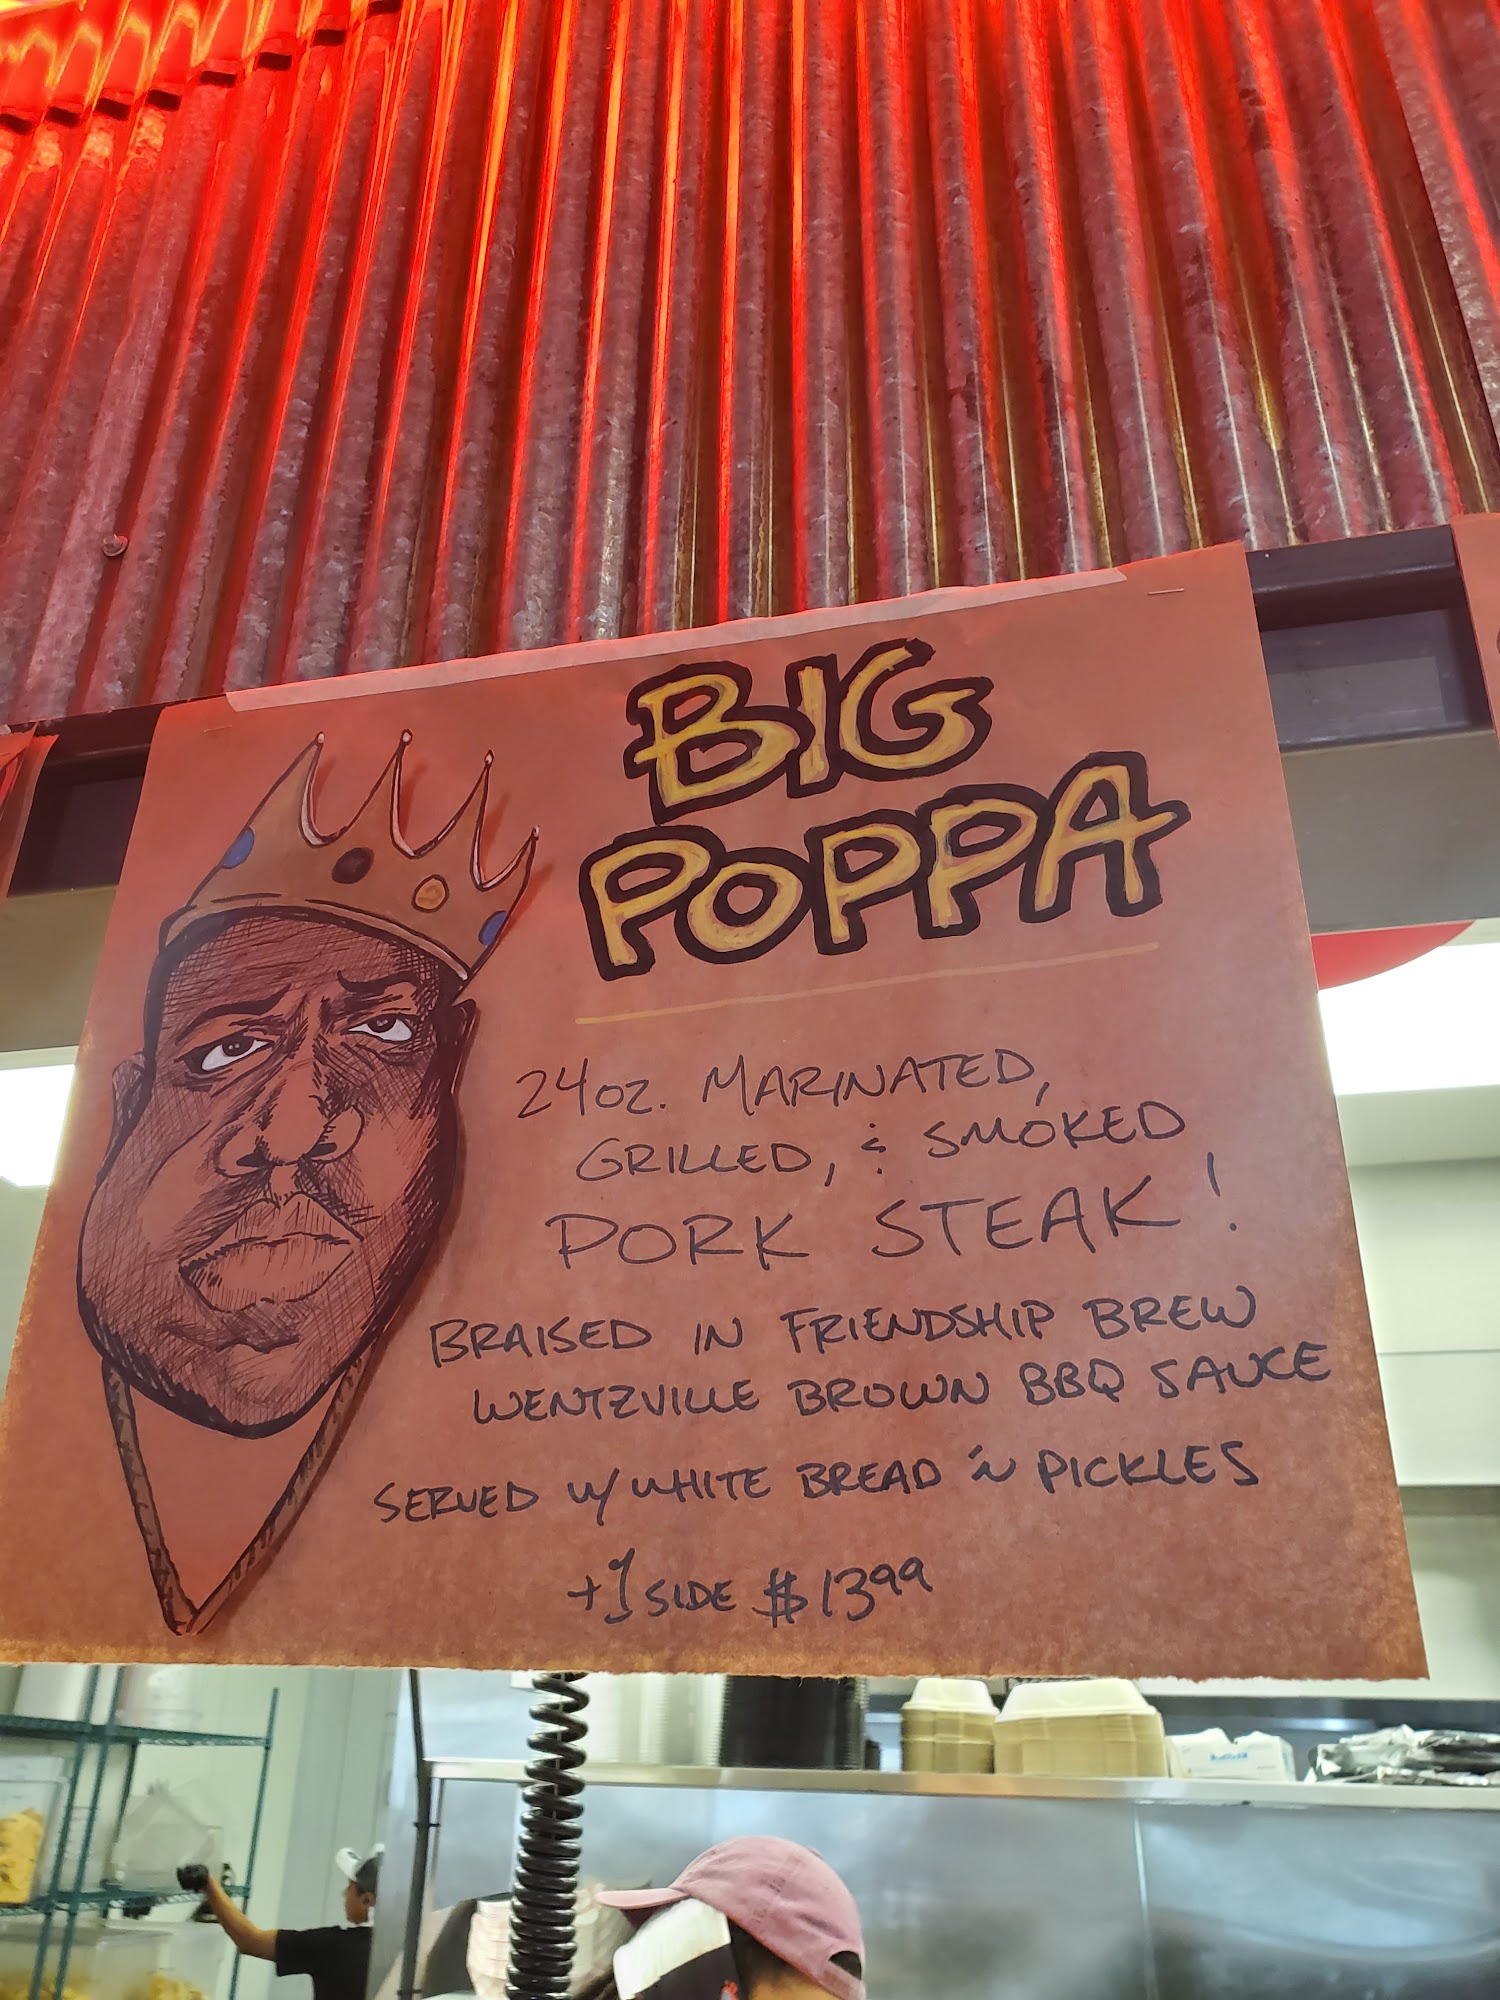 BIG
POPPA
24oz. MARINATED,
GRILLED, & SMOKED
PORK STEAK!
BRAISED IN FRIENDSHIP BREW
WENTZVILLE BROWN BBQ SAUCE
SERVED W/ WHITE BREAD 'N PICKLES
+1 SIDE $13.99